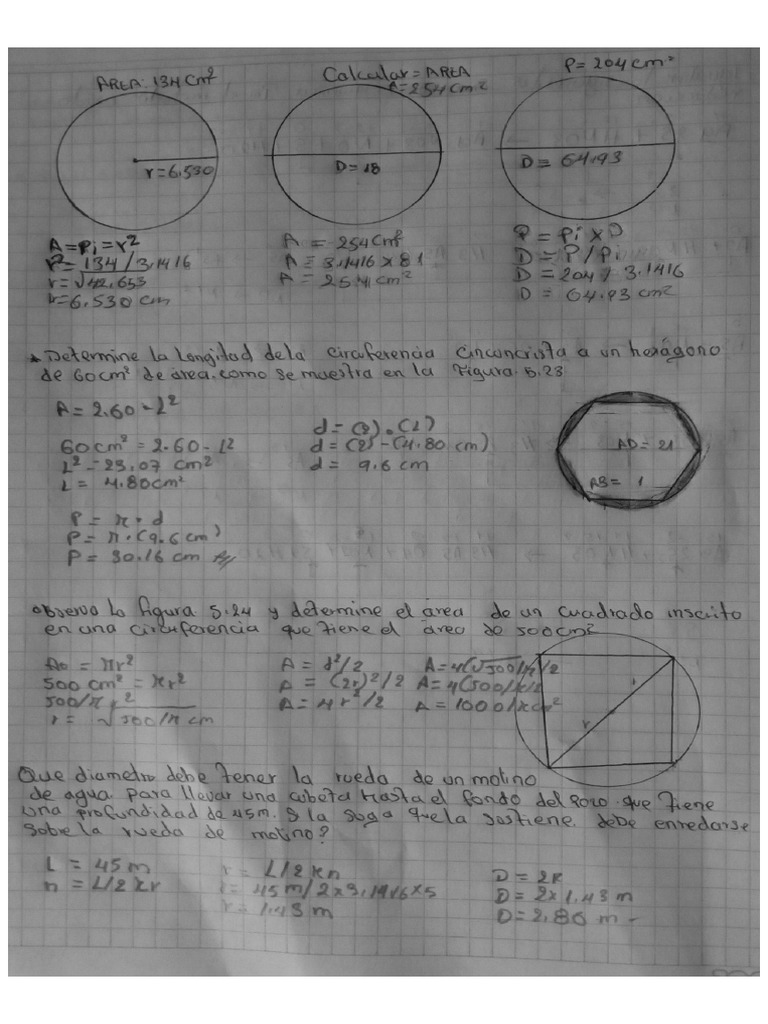 AREA: 134 Cm²
r=6.530
A=Pi=r²
r²=134/3.1416
r=√42.653
r=6.530 cm
Calcular=AREA
A=254cm²
D=18
A = 254cm²
A = 3.1416 x 81
A = 254 cm²
P=204cm²
D= 64.93
P = Pi x D
D = P/Pi
D = 204/3.1416
D = 64.93 cm²
Determine la Longitad dela circuferencia cinconcrista a un hexágono
de 60cm² de área. como se muestra en la Figura. 5.23
A = 2.60 - L²
60cm² = 2.60 - L²
L² = 23.07 cm²
L = 4.80cm²
d = (2).(L)
d = (2) - (4.80 cm)
d = 9.6 cm
AD= 21
AB= 1
P = π . d
P = π.(9.6 cm)
P = 30.16 cm
Observo la figura 5.24 y determine el area de un cuadrado inscrito
en una circuferencia que tiene el área de 500cm²
Ao = πr²
500 cm² = πr²
500/π r²
r = √500/π cm
A = d²/2
A = (2r)²/2
A = 4r²/2
A = 4(√500/π)/2
A = 4(500/π/2
A = 1000/π cm²
r
Que diametro debe tener la rueda de un molino
de agua para llevar una cubeta hasta el fondo del Pozo que tiene
una profundidad de 45m. Si la soga que la sostiene debe enredarse
sobre la rueda de molino?
L = 45 m
n = L/2πr
r = L/2πn
r = 45m/2x3.1416x5
r = 1.43 m
D = 2r
D = 2x1.43 m
D = 2.86 m